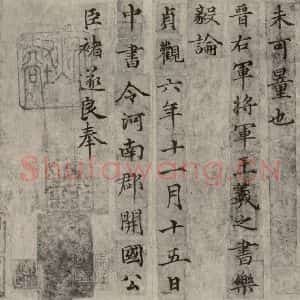 未可量也
晉右軍將軍王羲之書樂
毅論
貞觀六年十一月十五日
中書令河南郡開國公
臣褚遂良奉
Shufawang.CN